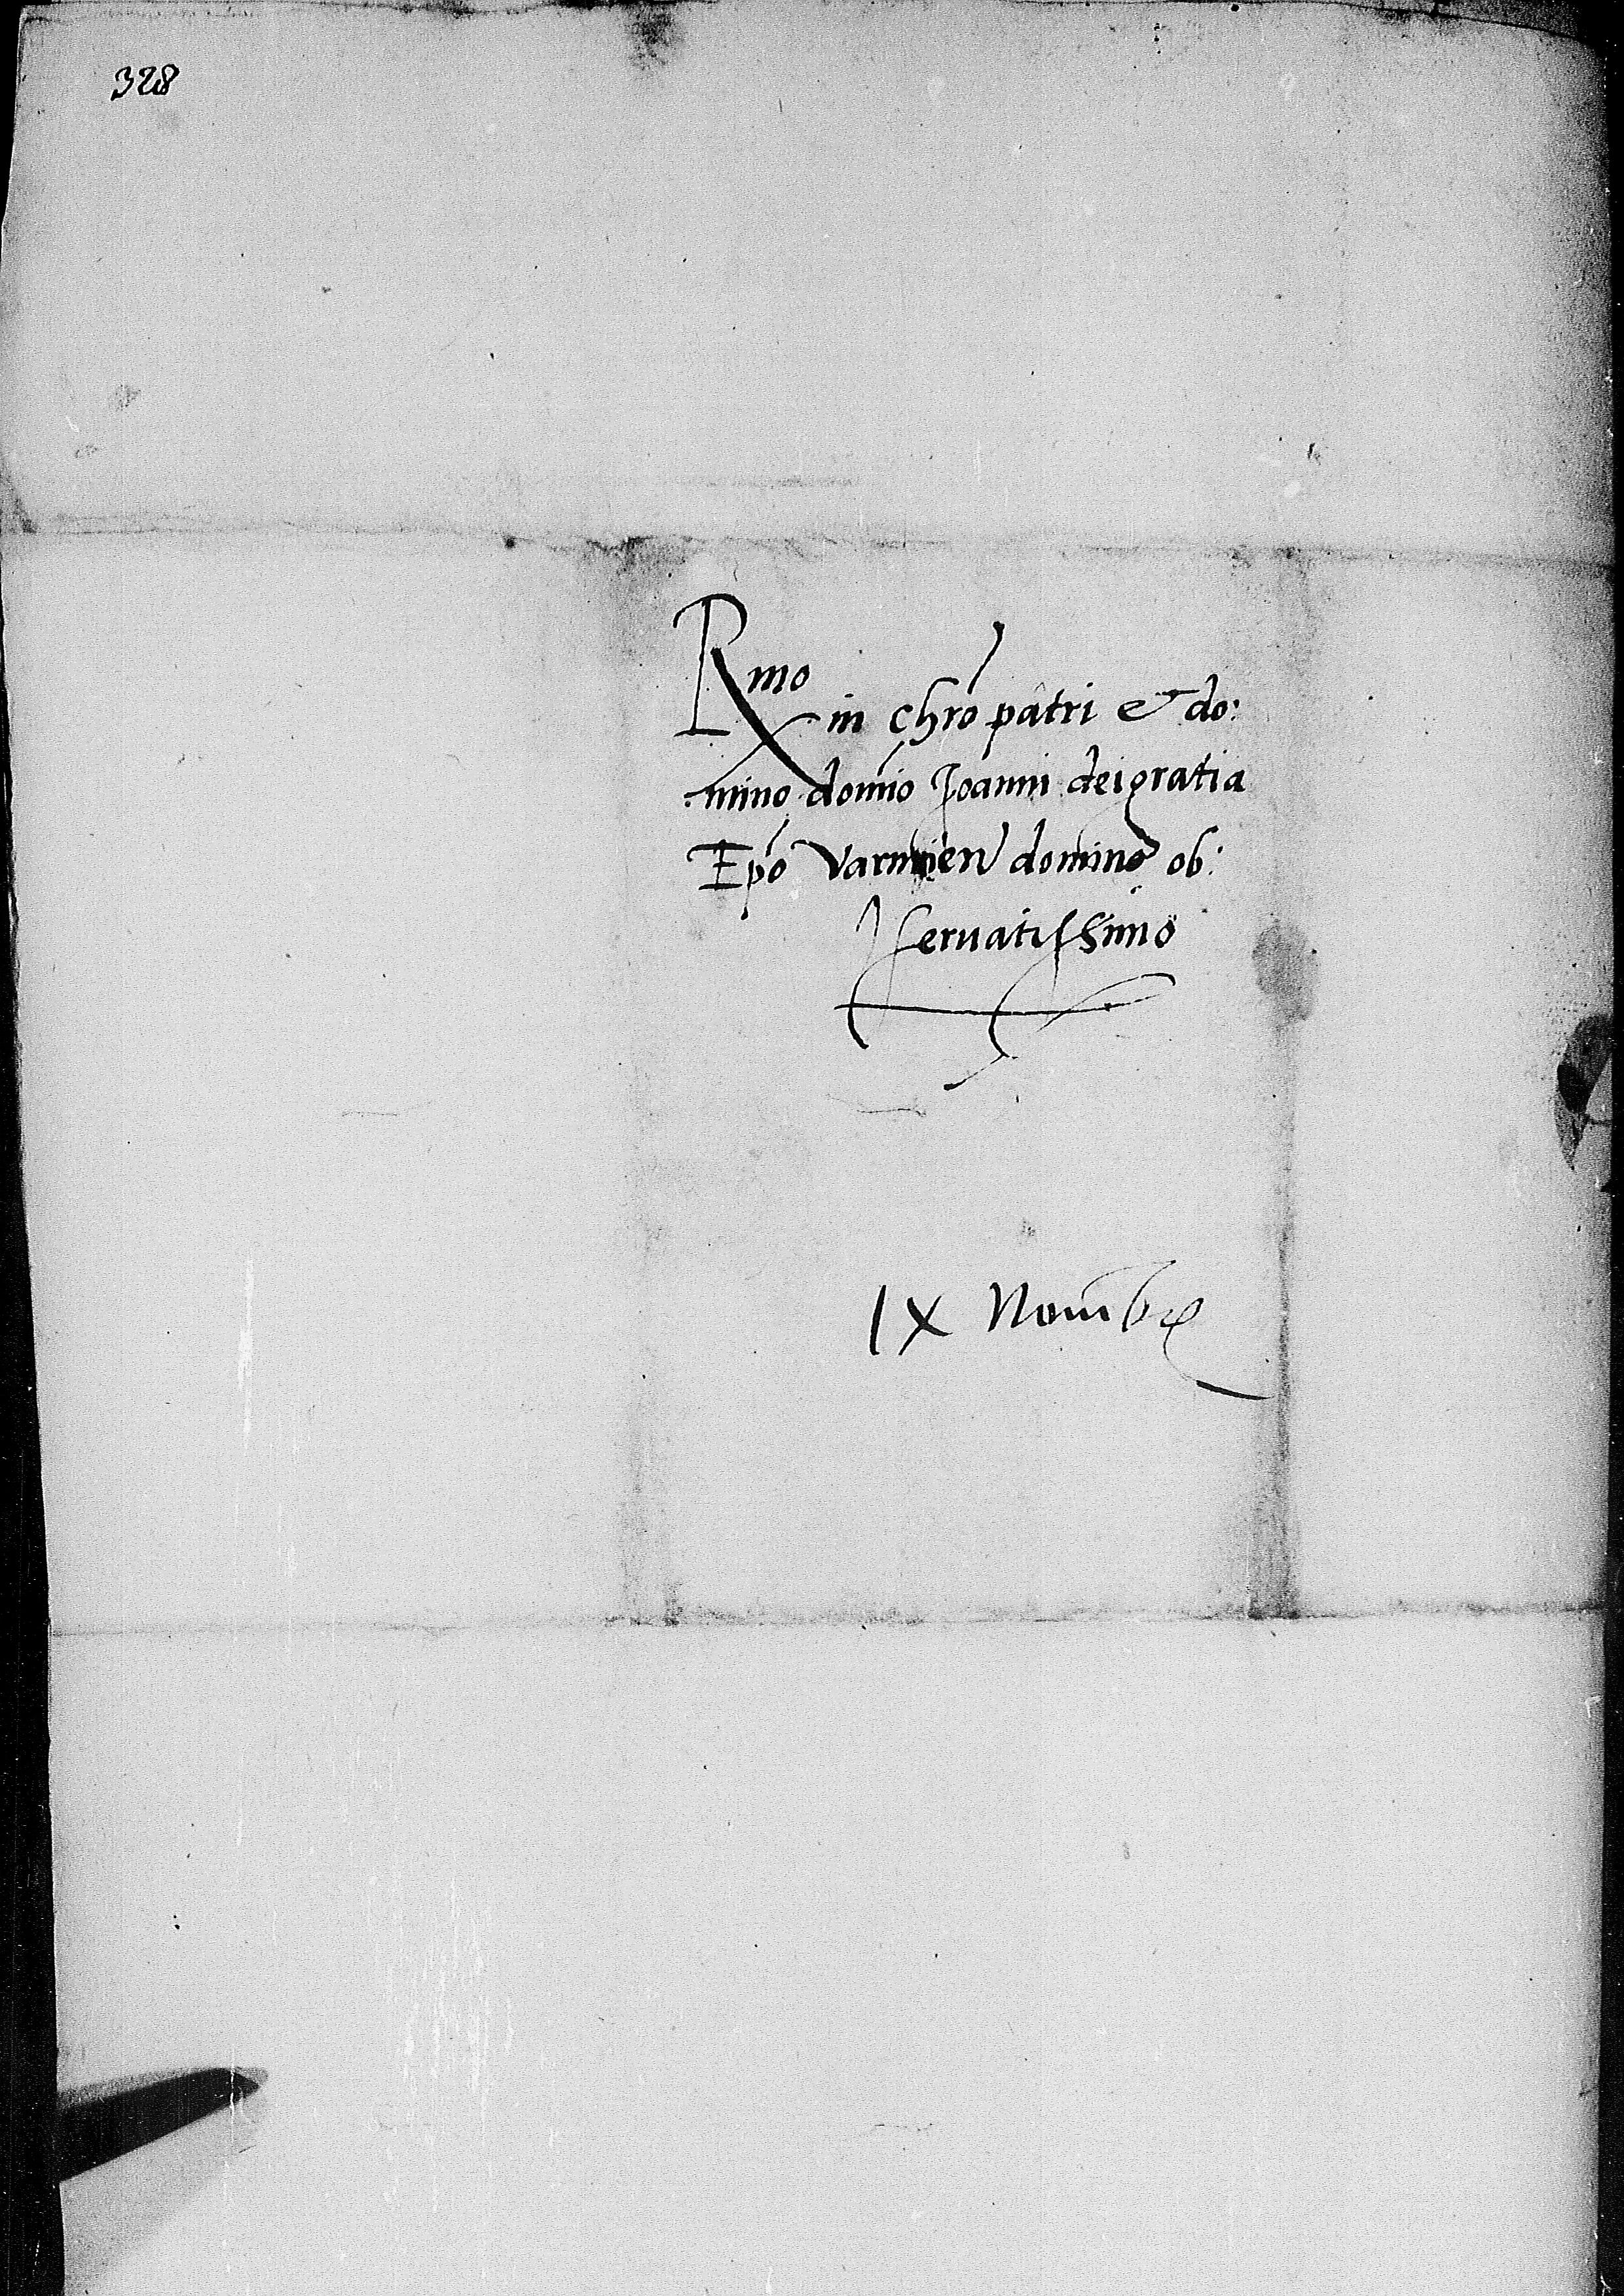 328
Rmo
in chro patri & do:
mino domio Joanni dei gratia
Epo Varmien domino ob:
servatissimo
IX Novembr